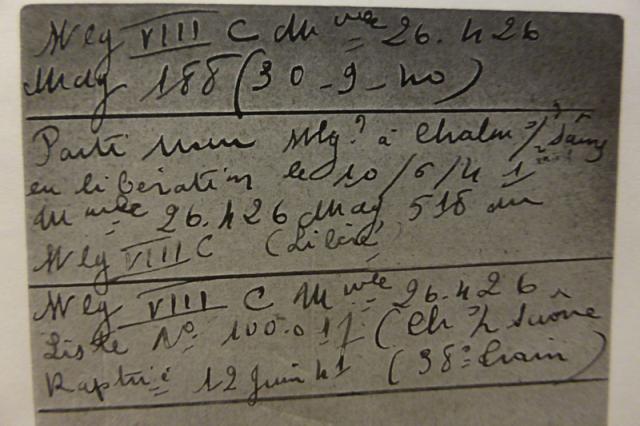 Stlg VIII C M mle 26.426
Mag 188 (30-9-40)
Parti Stlg? à Chalon s/ Saône
en libération le 10/6/41
M mle 26.426 Mag 518 du
Stlg VIII C (Libéré)
Stlg VIII C M mle 26.426
Liste No 100.017 (Ch s/ Saône
Raptrié 12 Juin 41 (38e train)